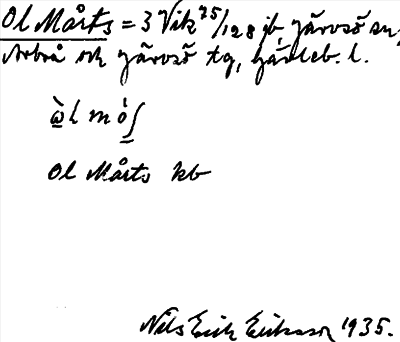 Ol Mårts = 3 Vik 25/128 jb, Järvsö sn,
Arbrå och Järvsö tg, Gävleb. l.
Ol Mårts kb
Nils Erik Eriksson 1935.